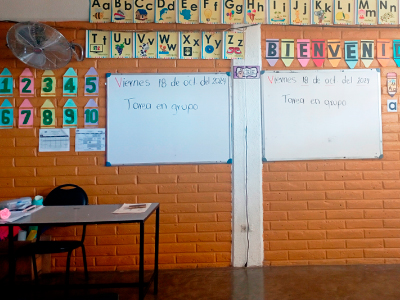 Aa Bb Cc Dd Ee Ff Gg Hh Ii Jj Kk Ll Mm Nn
Tt Uu Vv Ww Xx Yy Zz
BIENVENID
1 2 3 4 5
6 7 8 9 10
Viernes 18 de oct del 2024
Tarea en grupo
Viernes 18 de oct del 2024
Tarea en grupo
a